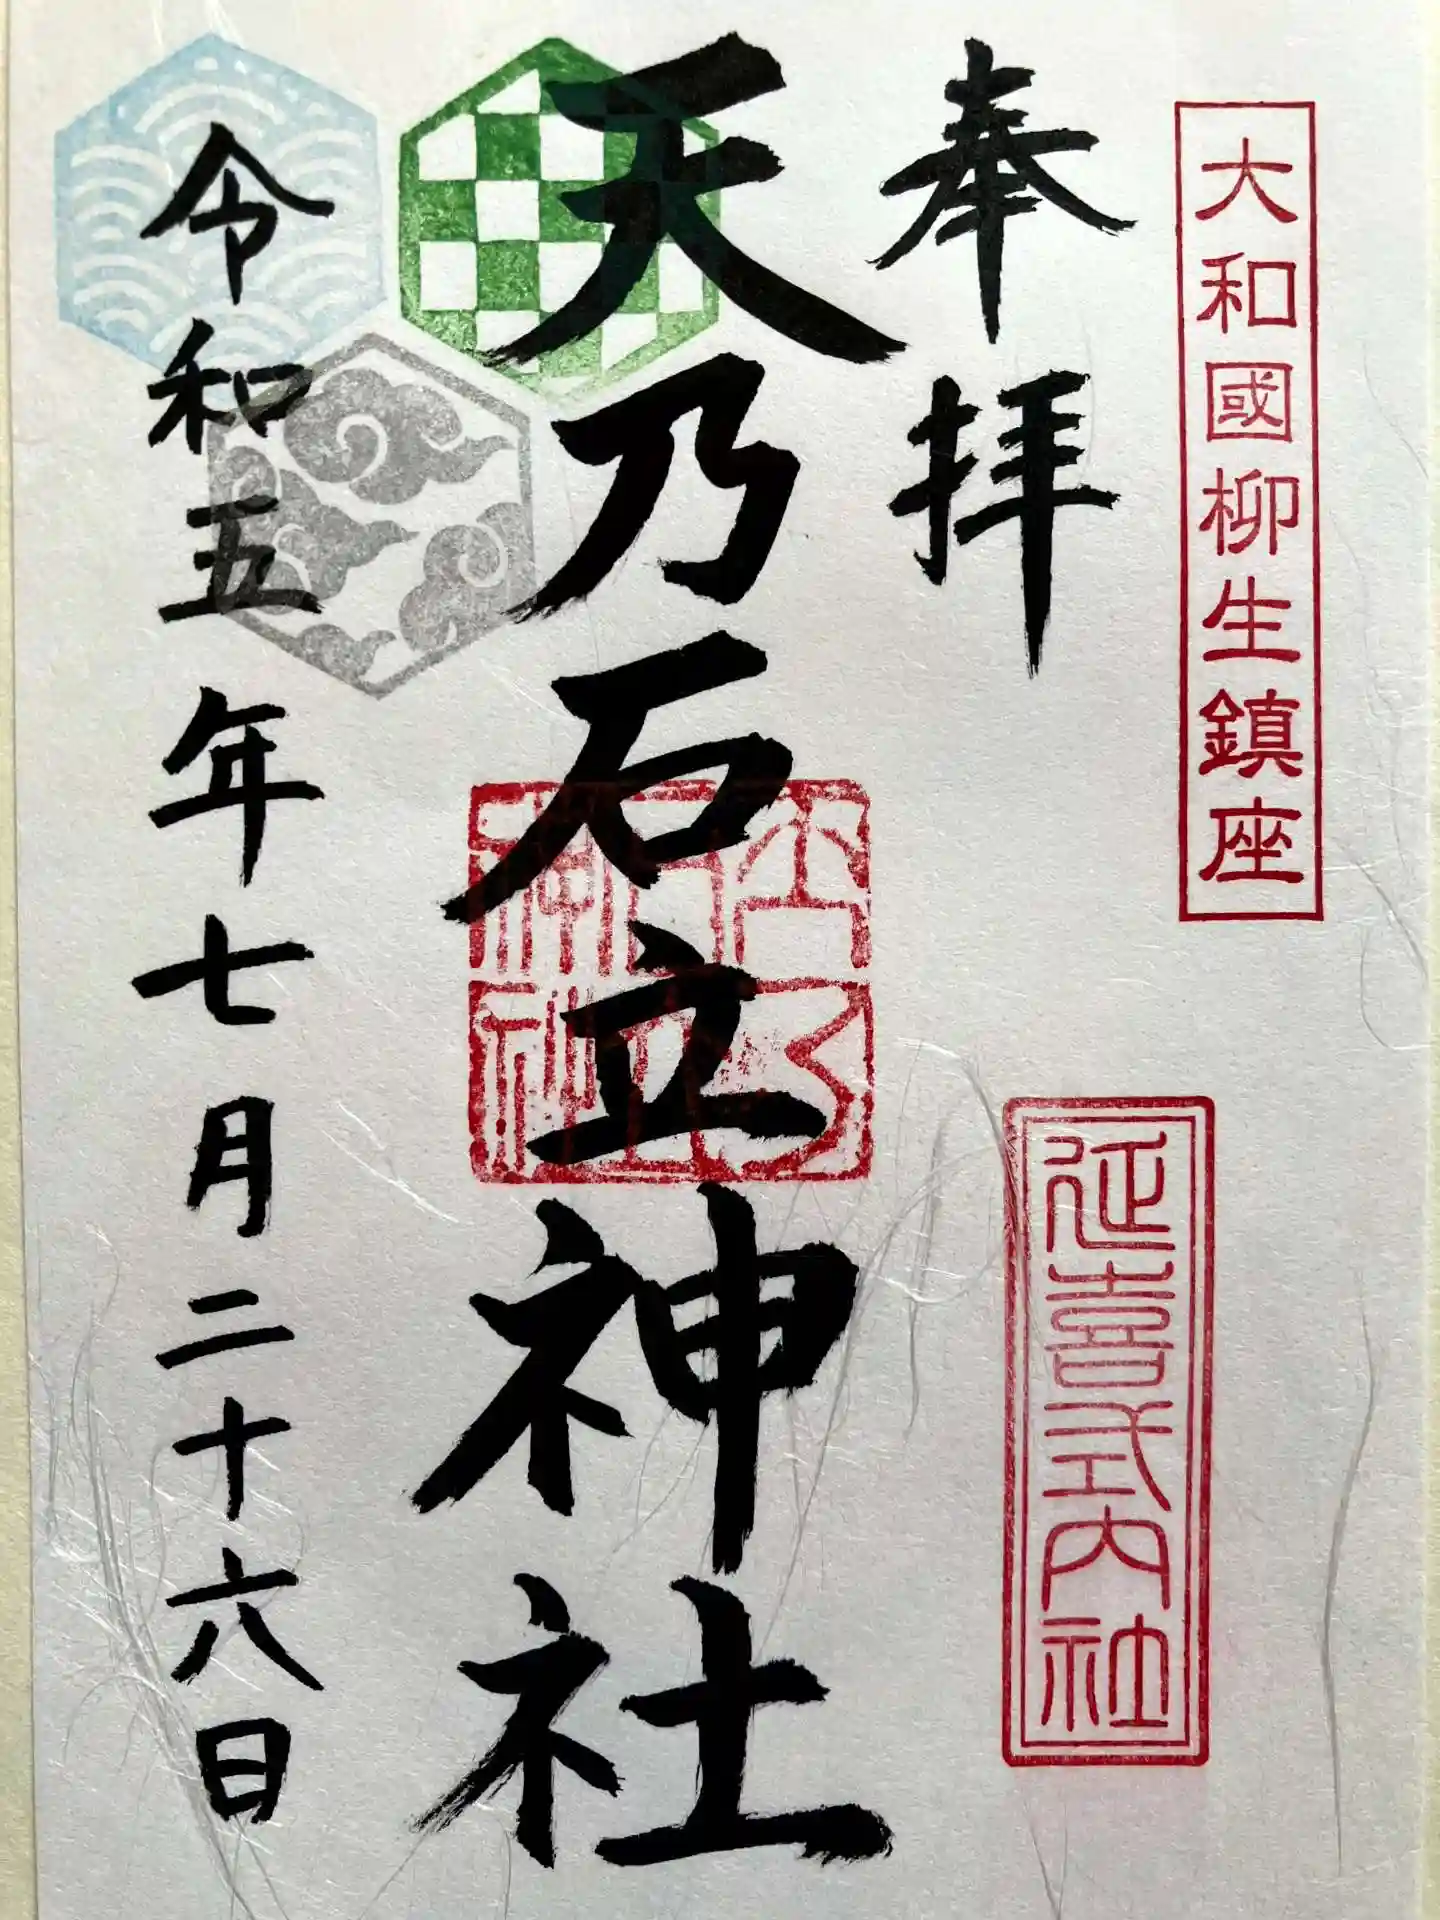 大和國柳生鎮座
奉拝
延喜式内社
天乃石立神社
令和五年七月二十六日